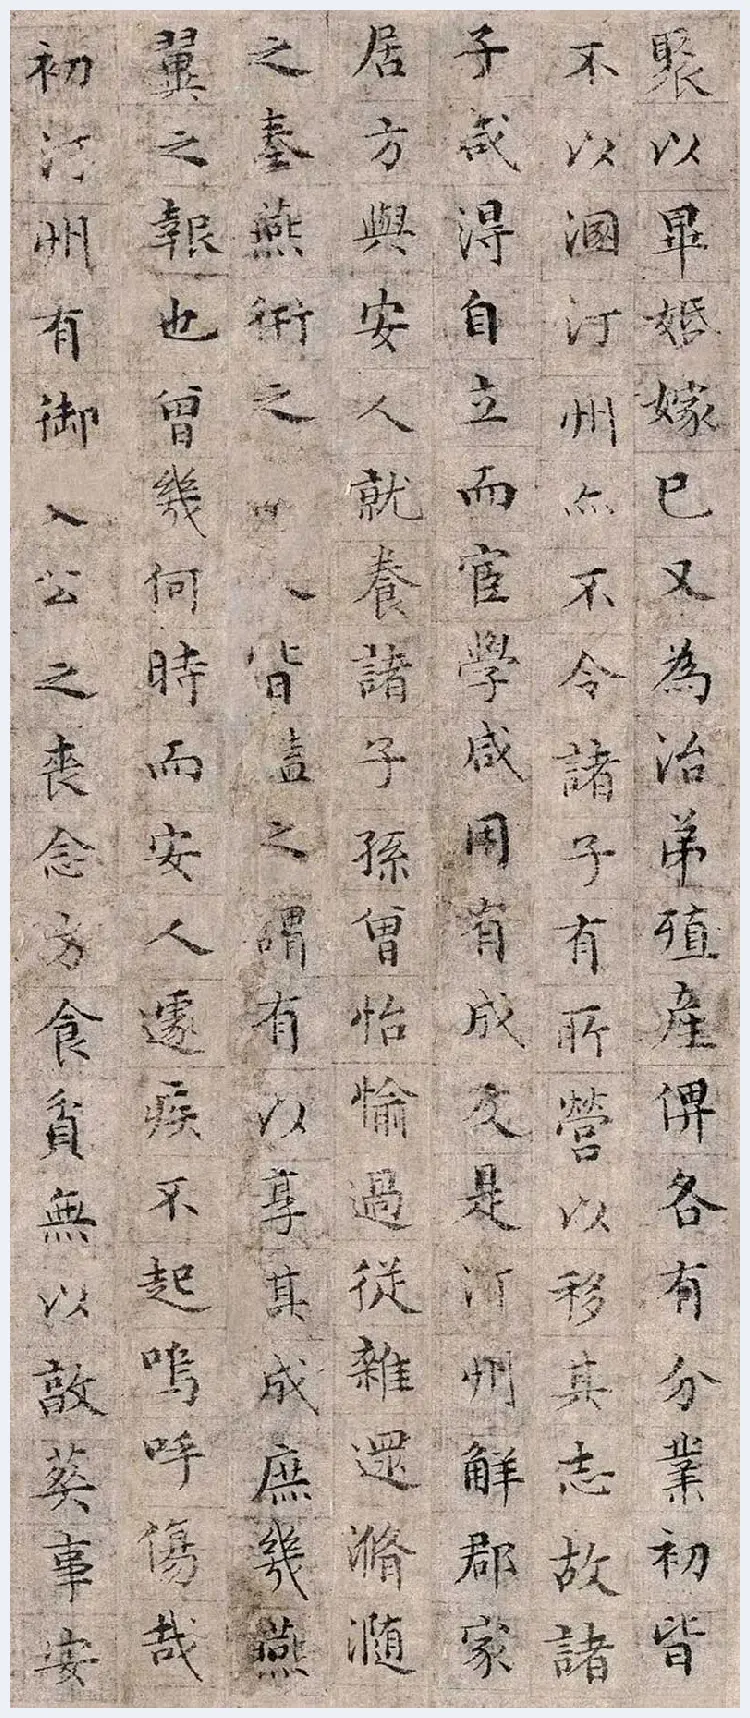 聚以畢婚嫁已又為治弟殖產俾各有分業初皆
不以溷汀州亦不令諸子有所營以移其志故諸
子咸得自立而宦學咸用有成及是汀州解郡家
居方與安人就養諸子孫曾怡愉過從雜遝滫瀡
之奉燕衎之人皆之謂有以享其成庶幾燕
翼之報也曾幾何時而安人遽疾不起嗚呼傷哉
初汀州有御公之喪念方食貧無以敦葬事安